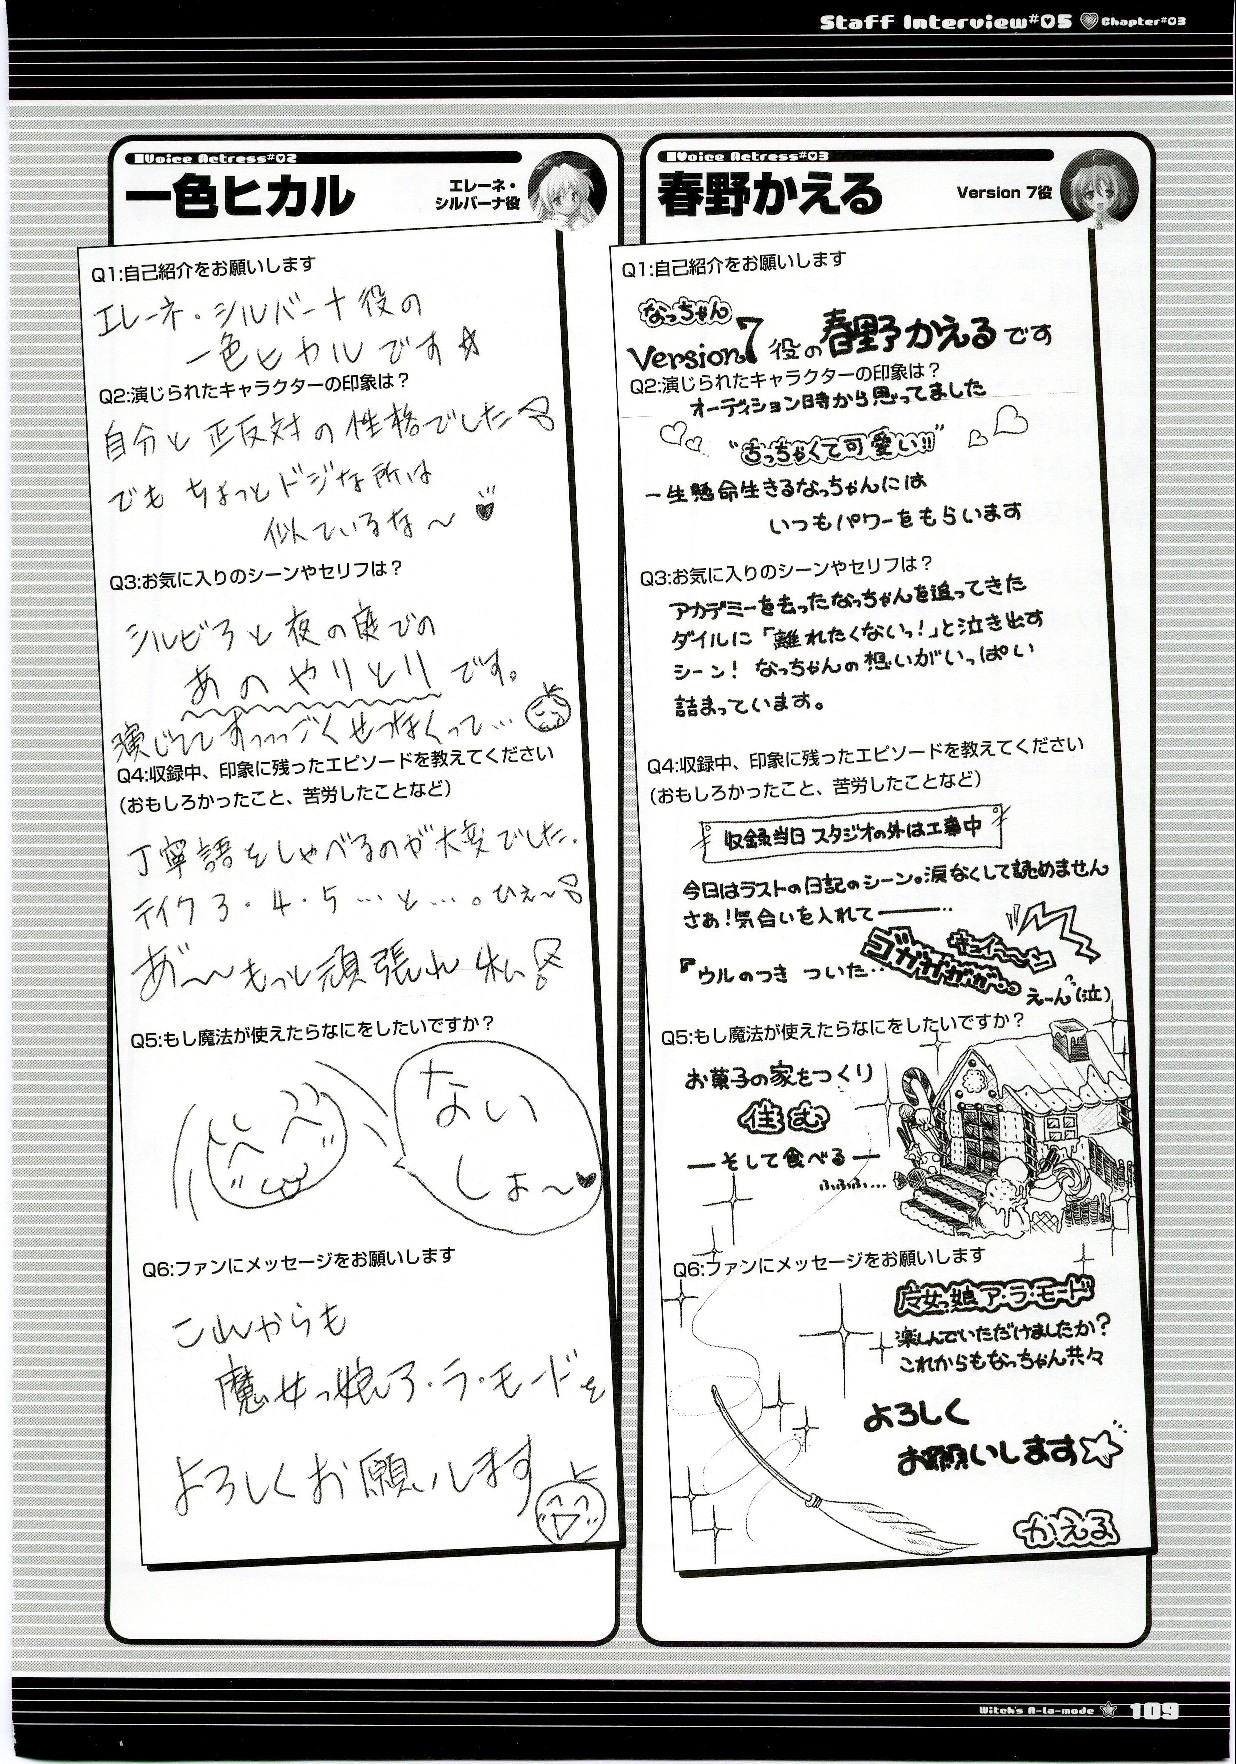 Staff Interview#05 Chapter#03
Voice Actress#02
一色ヒカル
エレーネ・
シルバーナ役
Q1:自己紹介をお願いします
エレーネ・シルバーナ役の
一色ヒカルです☆
Q2:演じられたキャラクターの印象は?
自分と正反対の性格でした
でもちょっとドジな所は
似ているな〜♥
Q3:お気に入りのシーンやセリフは?
シルビアと夜の庭での
あのやりとりです。
演じててすっっっごくせつなくって…
Q4:収録中、印象に残ったエピソードを教えてください
(おもしろかったこと、苦労したことなど)
丁寧語をしゃべるのが大変でした.
テイク3・4・5…と…。ひぇ〜
あ゛〜〜もっと頑張れ私
Q5:もし魔法が使えたらなにをしたいですか?
ない
しょ〜♥
Q6:ファンにメッセージをお願いします
これからも
魔女っ娘ア・ラ・モードを
よろしくお願いします
Voice Actress#03
春野かえる
Version 7役
Q1:自己紹介をお願いします
なっちゃん
Version7役の春野かえるです
Q2:演じられたキャラクターの印象は?
オーディション時から思ってました
"ちっちゃくて可愛い!!"
一生懸命生きるなっちゃんには
いつもパワーをもらいます
Q3:お気に入りのシーンやセリフは?
アカデミーを去ったなっちゃんを追ってきた
ダイルに「離れたくないっ!」と泣き出す
シーン!なっちゃんの想いがいっぱい
詰まっています。
Q4:収録中、印象に残ったエピソードを教えてください
(おもしろかったこと、苦労したことなど)
収録当日スタジオの外は工事中
今日はラストの日記のシーン。涙なくして読めません
さぁ!気合いを入れて―――‥
キュイーーン
『ウルのつき ついた‥ゴガガガガガ
えーん(泣)
Q5:もし魔法が使えたらなにをしたいですか?
お菓子の家をつくり
住む
―そして食べる―
ふふふ…
Q6:ファンにメッセージをお願いします
魔女っ娘ア・ラ・モード
楽しんでいただけましたか?
これからもなっちゃん共々
よろしく
お願いします☆
かえる
Witch's A-la-mode 109